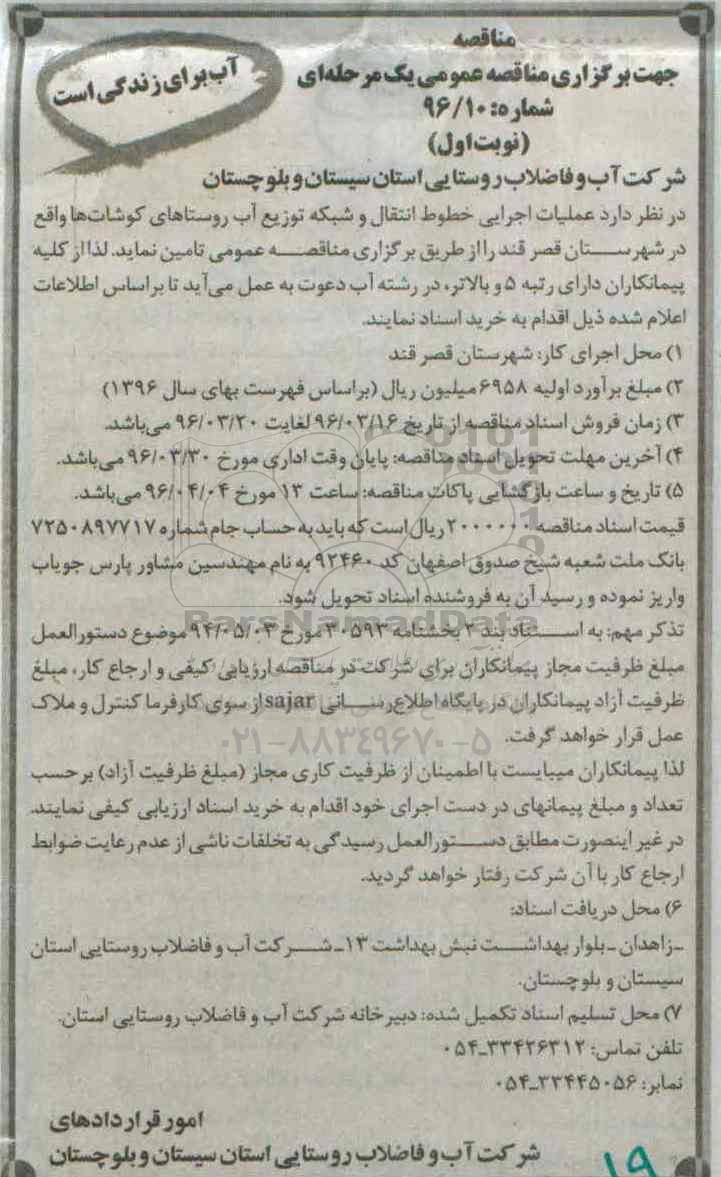 مناقصه
جهت برگزاری مناقصه عمومی یک مرحله‌ای
شماره: ۹۶/۱۰
(نوبت اول)
آب برای زندگی است
شرکت آب و فاضلاب روستایی استان سیستان و بلوچستان
در نظر دارد عملیات اجرایی خطوط انتقال و شبکه توزیع آب روستاهای کوشات‌ها واقع
در شهرستان قصر قند را از طریق برگزاری مناقصه عمومی تامین نماید. لذا از کلیه
پیمانکاران دارای رتبه ۵ و بالاتر، در رشته آب دعوت به عمل می‌آید تا براساس اطلاعات
اعلام شده ذیل اقدام به خرید اسناد نمایند.
۱) محل اجرای کار: شهرستان قصر قند
۲) مبلغ برآورد اولیه ۶۹۵۸ میلیون ریال (براساس فهرست بهای سال ۱۳۹۶)
۳) زمان فروش اسناد مناقصه از تاریخ ۹۶/۰۳/۱۶ لغایت ۹۶/۰۳/۲۰ می‌باشد.
۴) آخرین مهلت تحویل اسناد مناقصه: پایان وقت اداری مورخ ۹۶/۰۳/۳۰ می‌باشد.
۵) تاریخ و ساعت بازگشایی پاکات مناقصه: ساعت ۱۳ مورخ ۹۶/۰۴/۰۴ می‌باشد.
قیمت اسناد مناقصه ۲۰۰۰۰۰۰ ریال است که باید به حساب جام شماره ۷۲۵۰۸۹۷۷۱۷
بانک ملت شعبه شیخ صدوق اصفهان کد ۹۲۴۶۰ به نام مهندسین مشاور پارس جویاب
واریز نموده و رسید آن به فروشنده اسناد تحویل شود.
تذکر مهم: به استناد بند ۲ بخشنامه ۳۰۵۹۳ مورخ ۹۴/۰۵/۰۳ موضوع دستورالعمل
مبلغ ظرفیت مجاز پیمانکاران برای شرکت در مناقصه ارزیابی کیفی و ارجاع کار، مبلغ
ظرفیت آزاد پیمانکاران در پایگاه اطلاع‌رسانی sajar از سوی کارفرما کنترل و ملاک
عمل قرار خواهد گرفت.
لذا پیمانکاران میبایست با اطمینان از ظرفیت کاری مجاز (مبلغ ظرفیت آزاد) برحسب
تعداد و مبلغ پیمانهای در دست اجرای خود اقدام به خرید اسناد ارزیابی کیفی نمایند.
در غیر اینصورت مطابق دستورالعمل رسیدگی به تخلفات ناشی از عدم رعایت ضوابط
ارجاع کار با آن شرکت رفتار خواهد گردید.
۶) محل دریافت اسناد:
ـ زاهدان ـ بلوار بهداشت نبش بهداشت ۱۳ ـ شرکت آب و فاضلاب روستایی استان
سیستان و بلوچستان.
۷) محل تسلیم اسناد تکمیل شده: دبیرخانه شرکت آب و فاضلاب روستایی استان.
تلفن تماس: ۳۳۴۲۶۳۱۲ـ۰۵۴
نمابر: ۳۳۴۴۵۰۵۶ـ۰۵۴
امور قراردادهای
شرکت آب و فاضلاب روستایی استان سیستان و بلوچستان
۱۹
ParsNamadData
۰۲۱-۸۸۳۴۹۶۷۰-۵